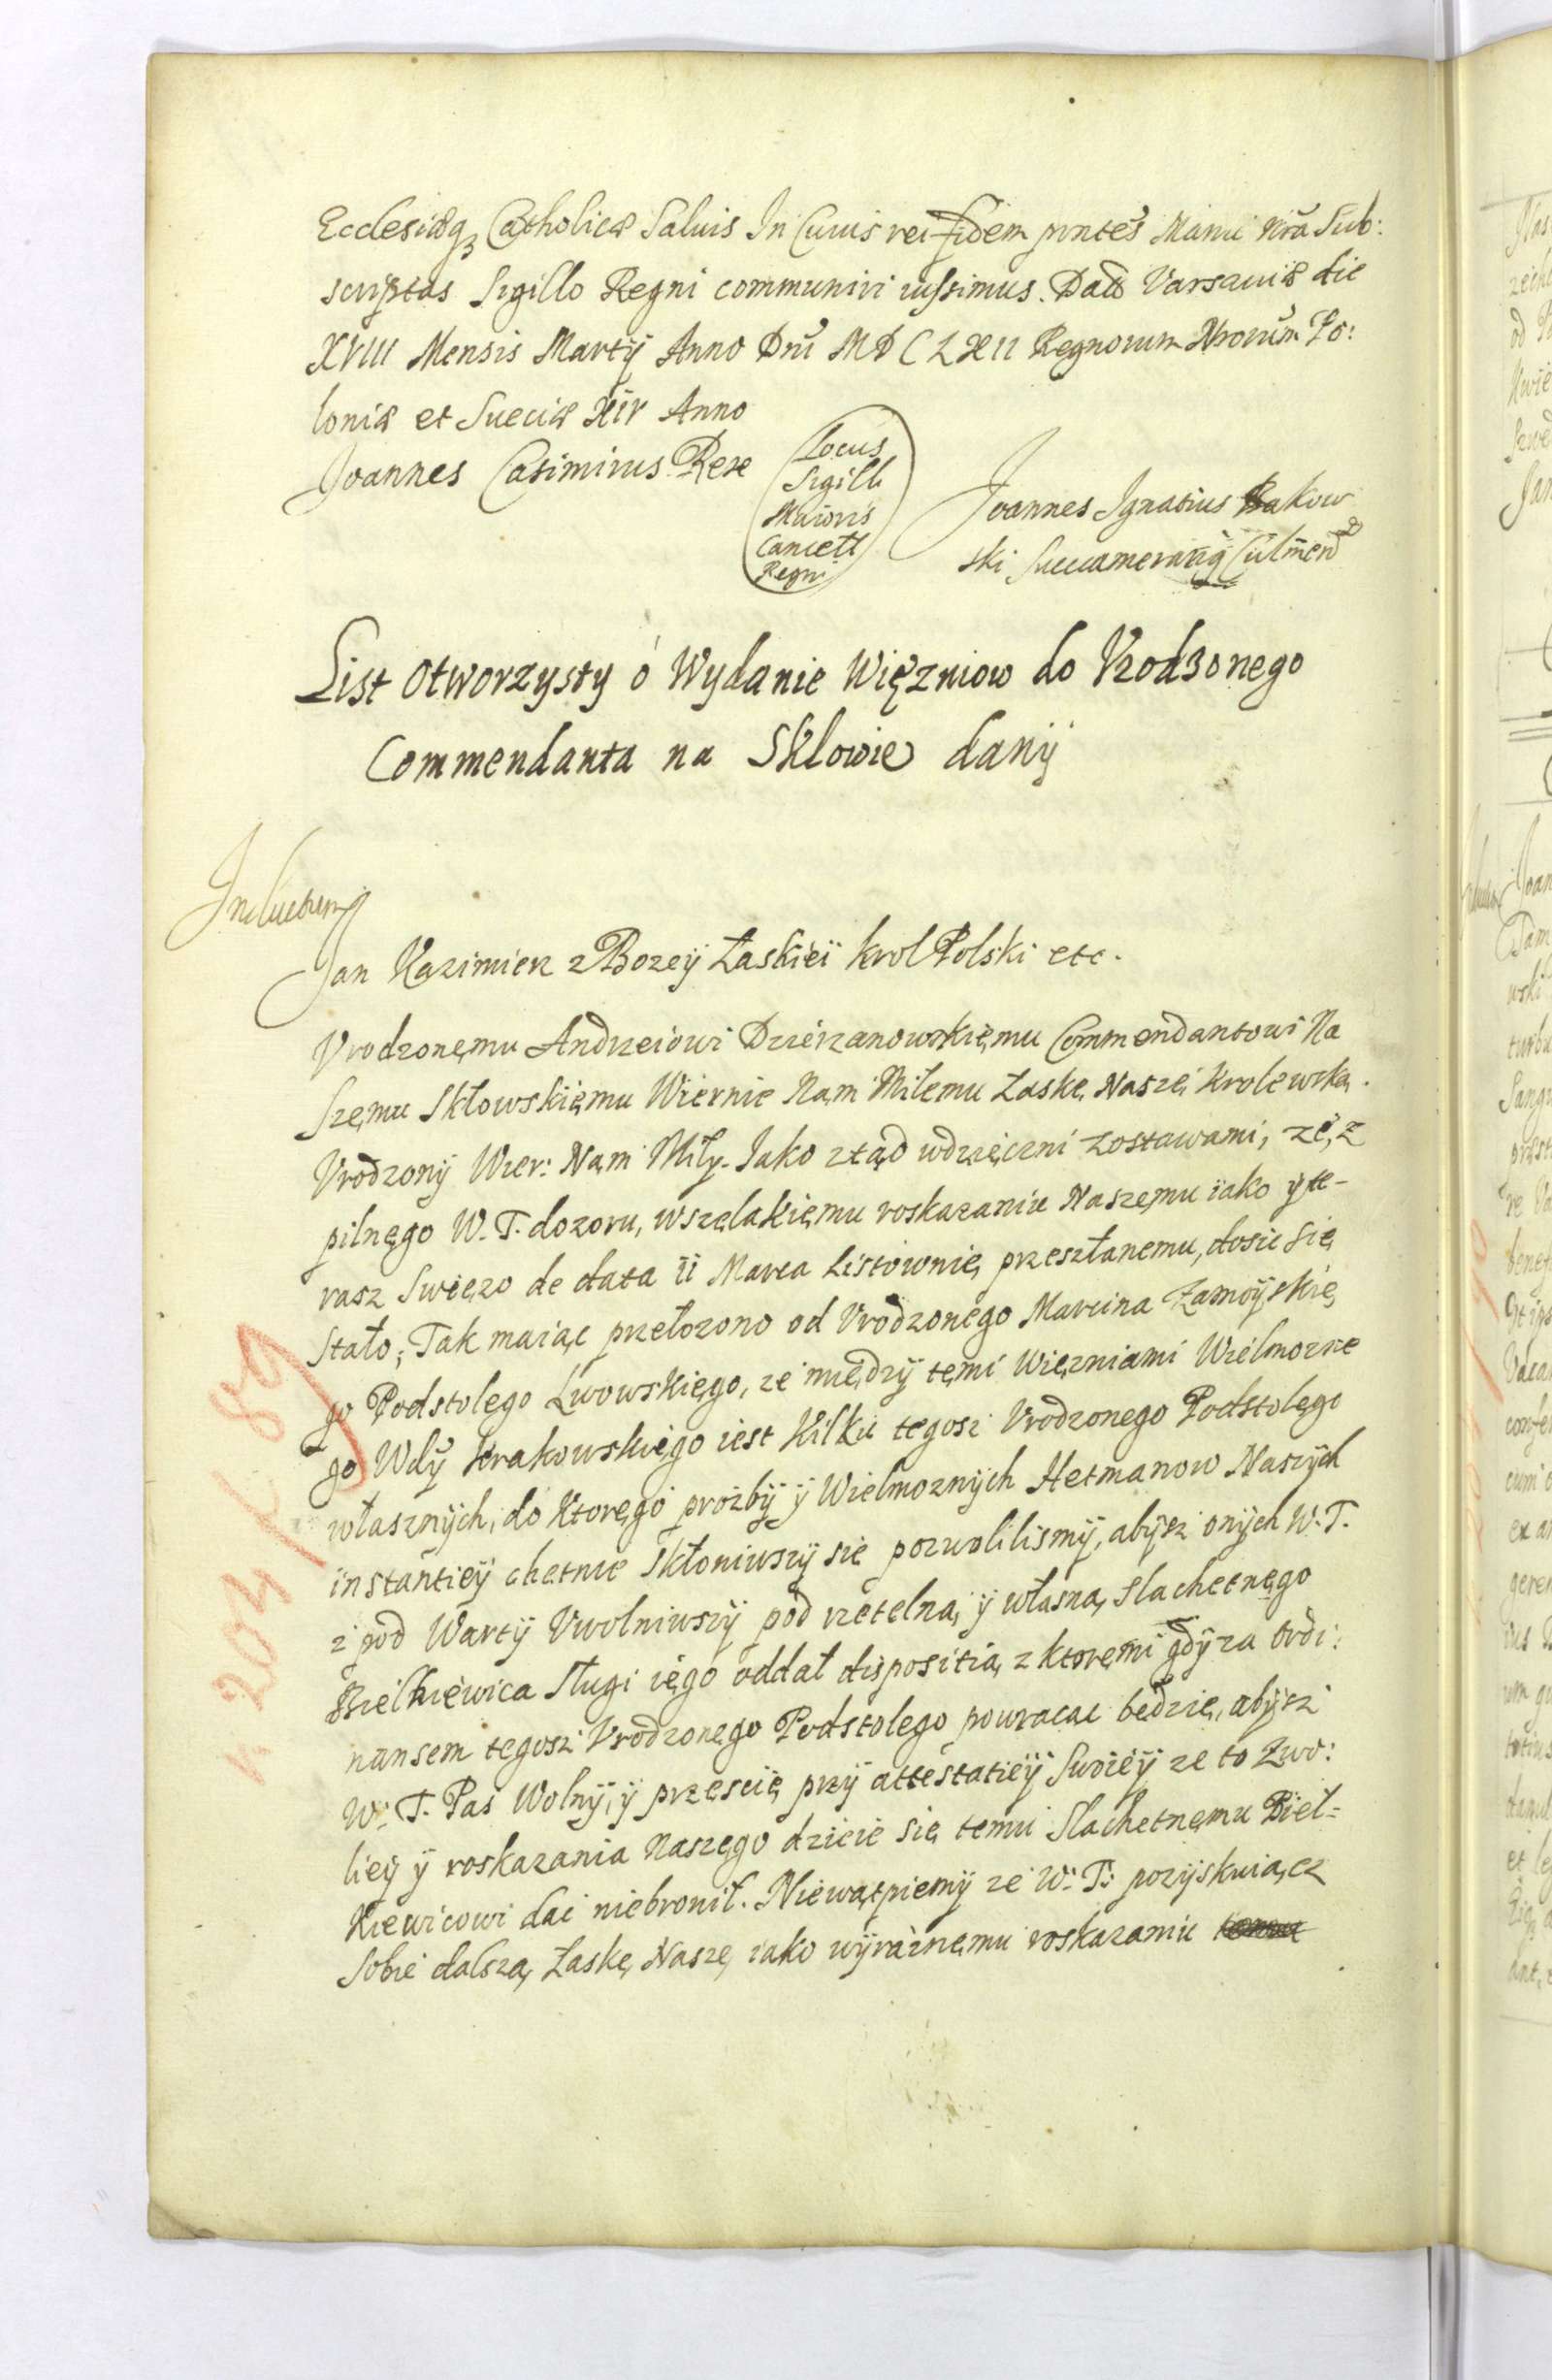 Ecclesiæqȝ Catholicæ Saluis In Cuius rei fidem pñtes Manu ñra Sub:
scriptas Sigillo Regni communiri iussimus. Dat Varsauiæ die
XVIII Mensis Martij Anno Dñi MDCLXII Regnorum Nrorum Po:
loniæ et Sueciæ XIV Anno
Joannes Casimirus Rex
Locus
Sigilli
Maioris
Cancell
Regni
Joannes Ignatius Bakow
ski Succamerarig Culmen
List otworzysty ó Wydanie Więzniow do Vrodzonego
Commendanta na Sklowie danÿ
Inductum
Jan Kazimierz z Bozeÿ Łaskiëi krol Polski etc.
Vrodzonęmu Andrzeiowi Dzierzanowskięmu Commendantowi Na
Szęmu Skłowskięmu Wiernie Nam Miłemu Łaskę Naszę Krolewską.
Vrodzonÿ Wier: Nam Miły. Jako ztąd wdzięczni zostawami, zé, z
pilnęgo W. T. dozoru, wszelakięmu roskazaniu Naszęmu iako ÿ te-
rasz Swiezo de data ii Marca Listownię przesłanemu, dosic się
Stało; Tak maiąc przełozono od Vrodzonego Marcina Zamoÿskię
go Podstolego Lwowskięgo, ze międzÿ tęmi Więzniami Wielmozne
go Wdÿ Krakowskięgo iest Kilku tegosz Vrodzonego Podstolęgo
własznÿch, do Ktoręgo prozbÿ ÿ Wielmoznÿch Hetmanow Naszÿch
instantieÿ chetnie Skłoniwszÿ się pozwolilismÿ, abÿsz onÿch W. T.
z pod Wartÿ Vwolniwszÿ pod rzetelną ÿ własną, slachetnęgo
Bielkiewica Sługi ięgo oddał dispositią z ktoręmi gdÿ za Ordi:
nansem tegosz Vrodzonęgo Podstolego powracac będzie, abÿsz
W. T. Pas Wolnÿ, ÿ przescię przÿ attestatieÿ Swoieÿ ze to Zwo:
lieÿ ÿ roskazania Naszęgo dzieie się temu Slachetnęmu Biel=
Kiewicowi dac niebronił. Niewątpiemÿ ze W. T. pozÿskuiącz
Sobie dalszą Łaskę Naszę iako wÿraznęmu roskazaniu
N. 204 K 89